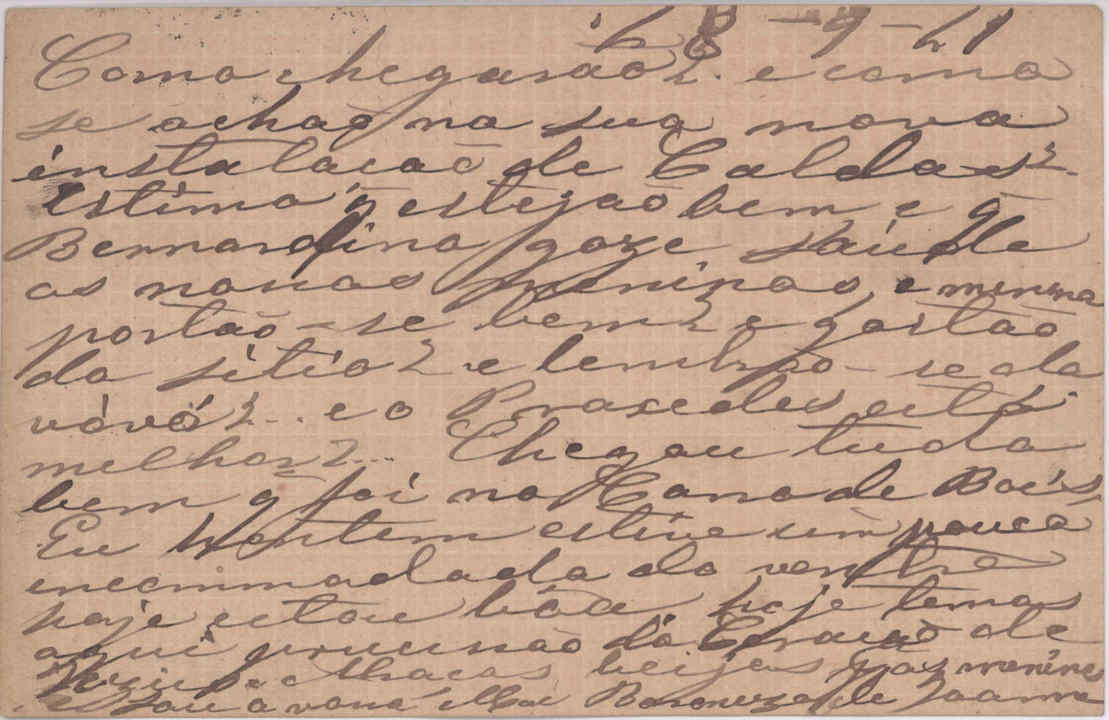 8-9-
Como chegarão? e como
se achão na sua nova
instalacaõ de Caldas?
Estimo q̃ estejaõ bem e q̃
Bernardina goze saúde
as nouas meninas, e menina
portão-se bem? e gostão
do sitio? e lembrão-se da
vóvó?.. e o Praxedes está
melhor?.. Chegou tudo
bem q̃ foi no Carro de Bois
Eu hontem estive um pouco
incommodada do ventre
hoje estou bôa, hoje temos
aqui procissão do Coração de
beijos as meninas
a vovó Baroneza de Joanne